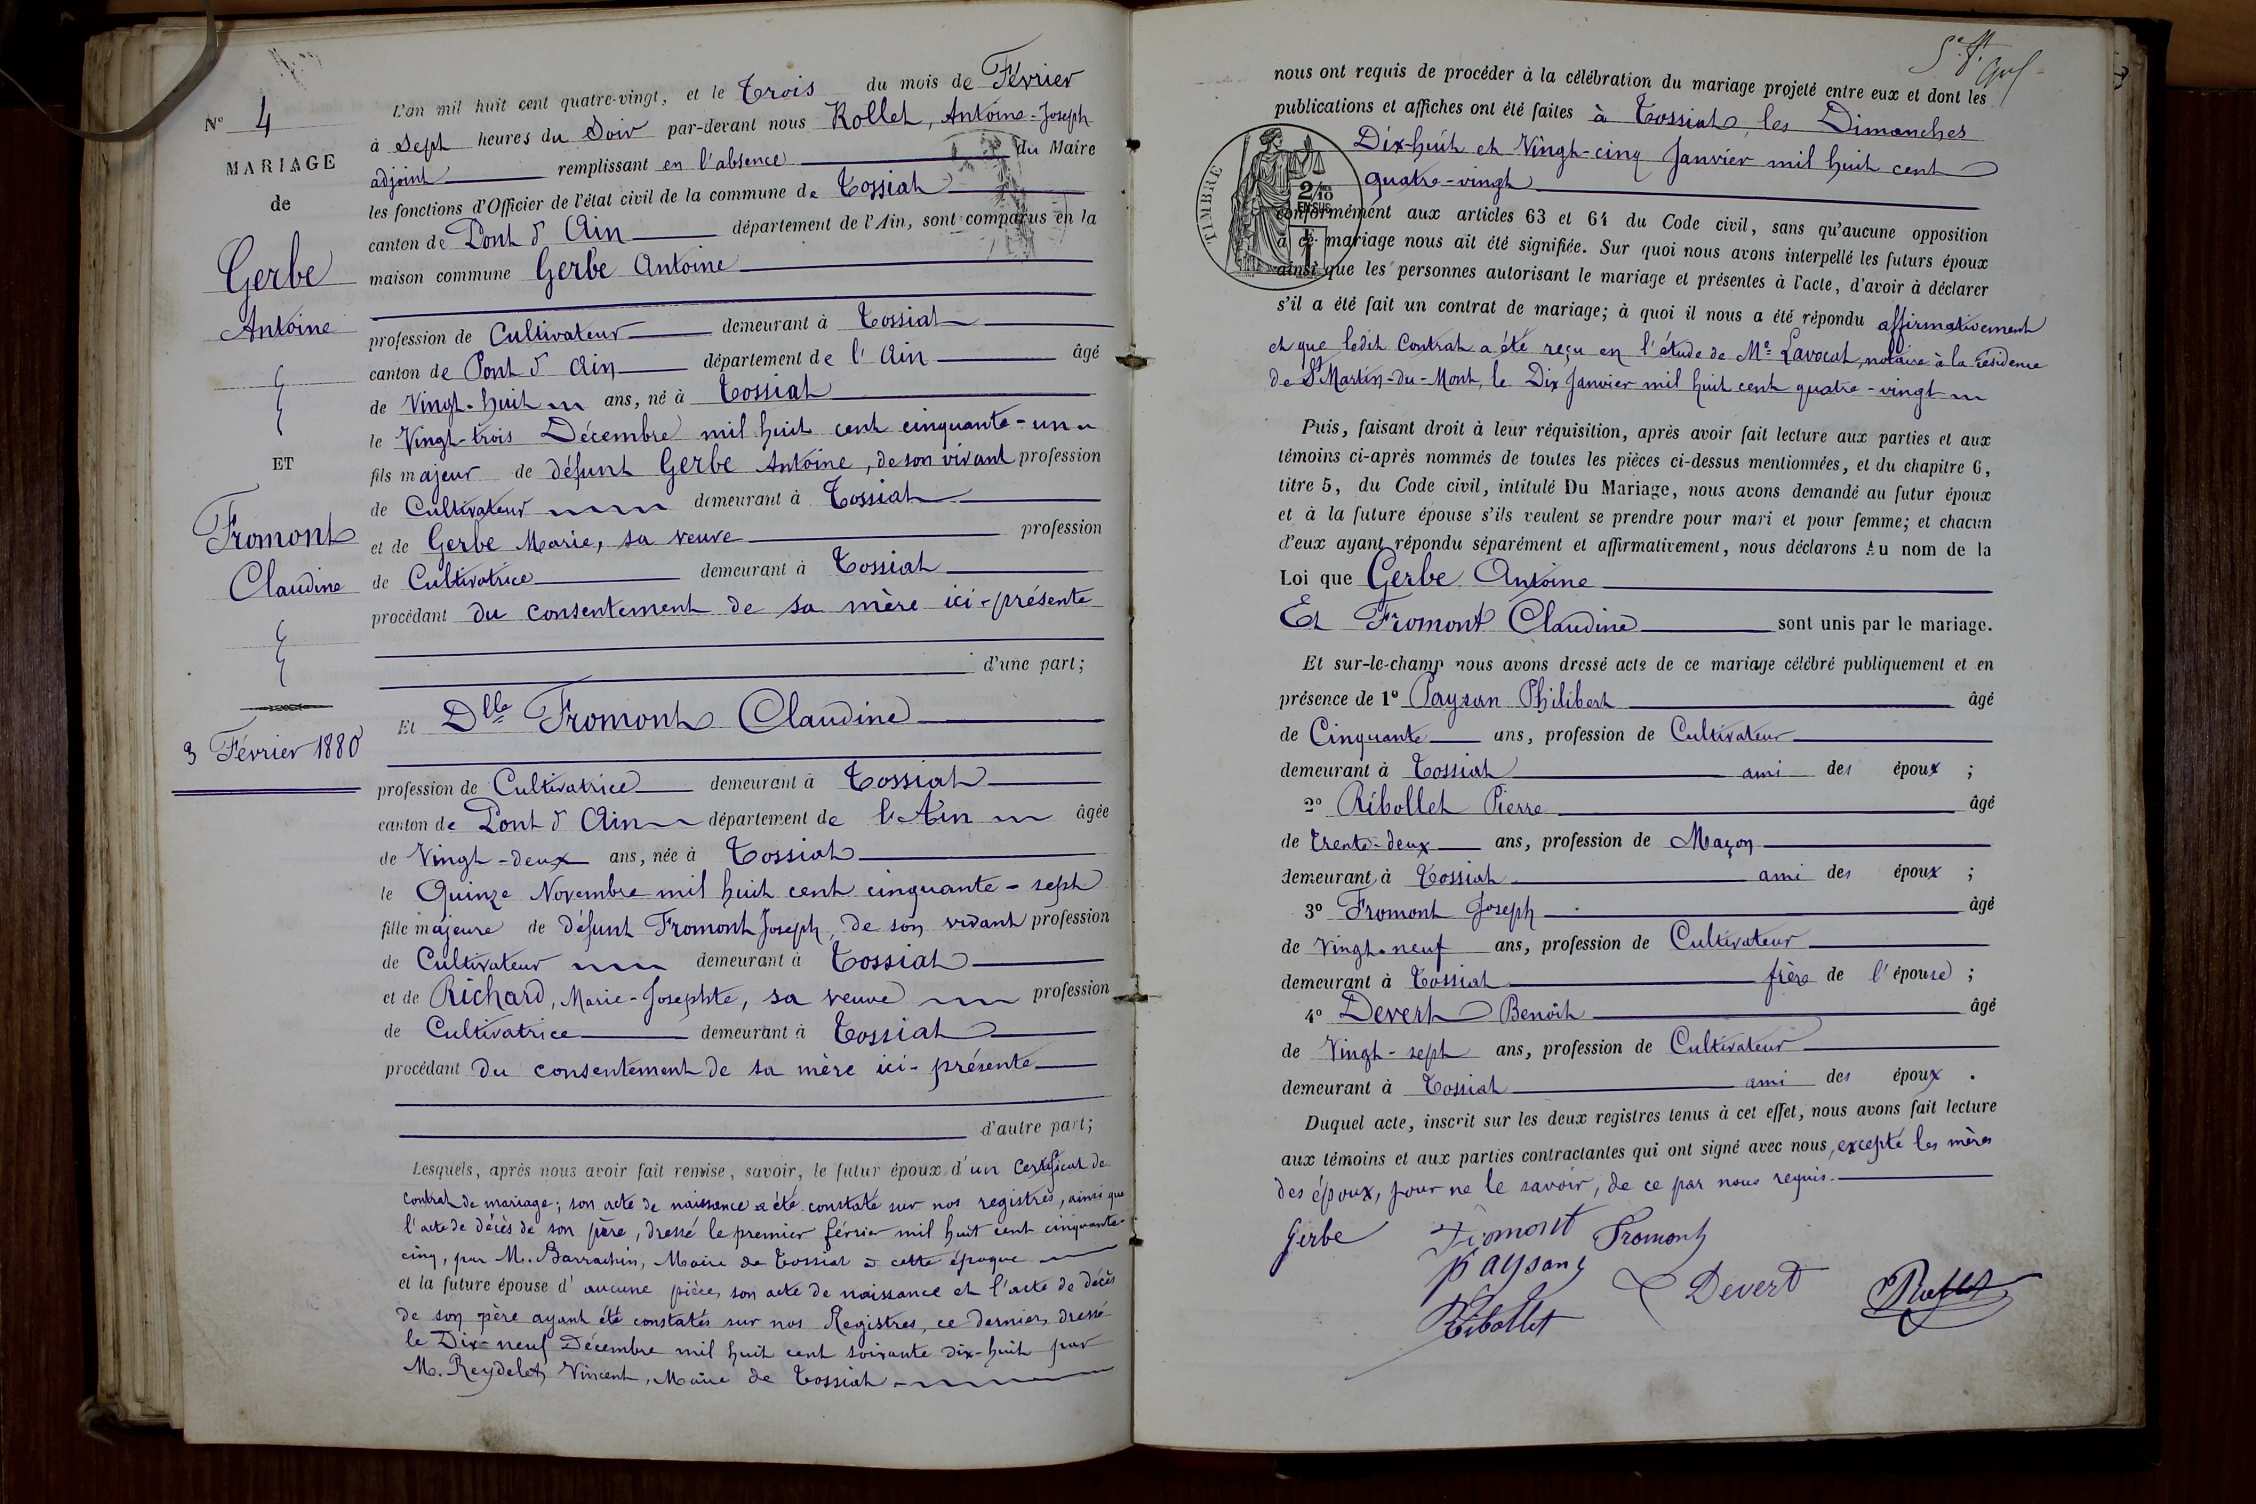 N° 4
MARIAGE
de
Gerbe
Antoine
ET
Fromont
Claudine
3 Février 1880
L'an mil huit cent quatre-vingt, et le Trois du mois de Février
à Sept heures du Soir par-devant nous Rollet, Antoine-Joseph
adjoint remplissant en l'absence du Maire
les fonctions d'Officier de l'état civil de la commune de Tossiat
canton de Pont d'Ain département de l'Ain, sont comparus en la
maison commune Gerbe Antoine
profession de Cultivateur demeurant à Tossiat
canton de Pont d'Ain département de l'Ain âgé
de Vingt-huit ans, né à Tossiat
le Vingt-trois Décembre mil huit cent cinquante-un
fils majeur de défunt Gerbe Antoine, de son vivant profession
de Cultivateur demeurant à Tossiat
et de Gerbe Marie, sa veuve profession
de Cultivatrice demeurant à Tossiat
procédant du consentement de sa mère ici-présente
d'une part;
Et Dlle Fromont Claudine
profession de Cultivatrice demeurant à Tossiat
canton de Pont d'Ain département de l'Ain âgée
de Vingt-deux ans, née à Tossiat
le Quinze Novembre mil huit cent cinquante-sept
fille majeure de défunt Fromont Joseph, de son vivant profession
de Cultivateur demeurant à Tossiat
et de Richard, Marie-Josephte, sa veuve profession
de Cultivatrice demeurant à Tossiat
procédant du consentement de sa mère ici-présente
d'autre part;
Lesquels, après nous avoir fait remise, savoir, le futur époux d'un Certificat de
contrat de mariage; son acte de naissance a été constaté sur nos registres, ainsi que
l'acte de décès de son père, dressé le premier février mil huit cent cinquante-
cinq, par M. Barrachin, Maire de Tossiat à cette époque
et la future épouse d'aucune pièce, son acte de naissance et l'acte de décès
de son père ayant été constatés sur nos Registres, ce dernier, dressé
le Dix-neuf Décembre mil huit cent soixante dix-huit par
M. Reydelet, Vincent, Maire de Tossiat
nous ont requis de procéder à la célébration du mariage projeté entre eux et dont les
publications et affiches ont été faites à Tossiat, les Dimanches
Dix-huit et Vingt-cinq Janvier mil huit cent
quatre-vingt
TIMBRE
2/10
EN SUS
conformément aux articles 63 et 64 du Code civil, sans qu'aucune opposition
à ce mariage nous ait été signifiée. Sur quoi nous avons interpellé les futurs époux
ainsi que les personnes autorisant le mariage et présentes à l'acte, d'avoir à déclarer
s'il a été fait un contrat de mariage; à quoi il nous a été répondu affirmativement
et que ledit Contrat a été reçu en l'étude de Me Lavocat, notaire à la résidence
de St Martin-du-Mont, le Dix Janvier mil huit cent quatre-vingt
Puis, faisant droit à leur réquisition, après avoir fait lecture aux parties et aux
témoins ci-après nommés de toutes les pièces ci-dessus mentionnées, et du chapitre 6,
titre 5, du Code civil, intitulé Du Mariage, nous avons demandé au futur époux
et à la future épouse s'ils veulent se prendre pour mari et pour femme; et chacun
d'eux ayant répondu séparément et affirmativement, nous déclarons Au nom de la
Loi que Gerbe Antoine
Et Fromont Claudine sont unis par le mariage.
Et sur-le-champ nous avons dressé acte de ce mariage célébré publiquement et en
présence de 1° Paysan Philibert âgé
de Cinquante ans, profession de Cultivateur
demeurant à Tossiat ami des époux ;
2° Ribollet Pierre âgé
de trente-deux ans, profession de Maçon
demeurant à Tossiat ami des époux ;
3° Fromont Joseph âgé
de Vingt-neuf ans, profession de Cultivateur
demeurant à Tossiat frère de l'épouse ;
4° Devert Benoît âgé
de Vingt-sept ans, profession de Cultivateur
demeurant à Tossiat ami des époux .
Duquel acte, inscrit sur les deux registres tenus à cet effet, nous avons fait lecture
aux témoins et aux parties contractantes qui ont signé avec nous, excepté les mères
des époux, pour ne le savoir, de ce par nous requis.
Gerbe Fromont Fromont
Paysan
Devert Rollet
Ribollet